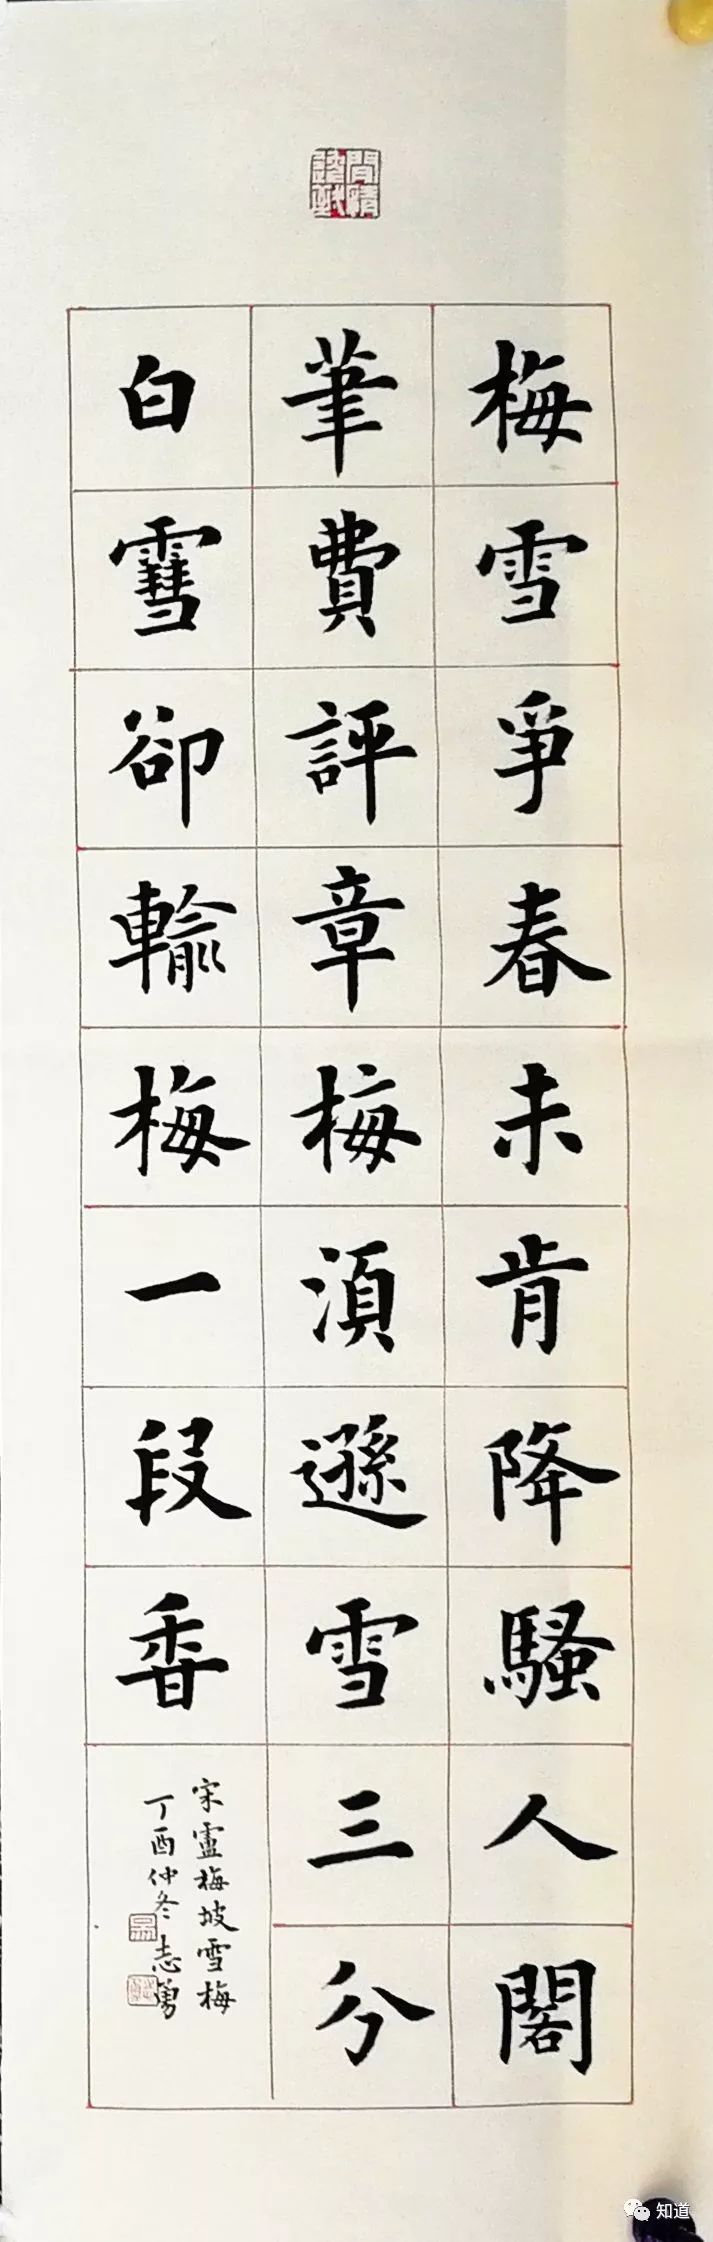 梅雪爭春未肯降騷人閣
筆費評章梅須遜雪三分
白雪卻輸梅一段香
宋盧梅坡雪梅
丁酉仲冬志勇
知道